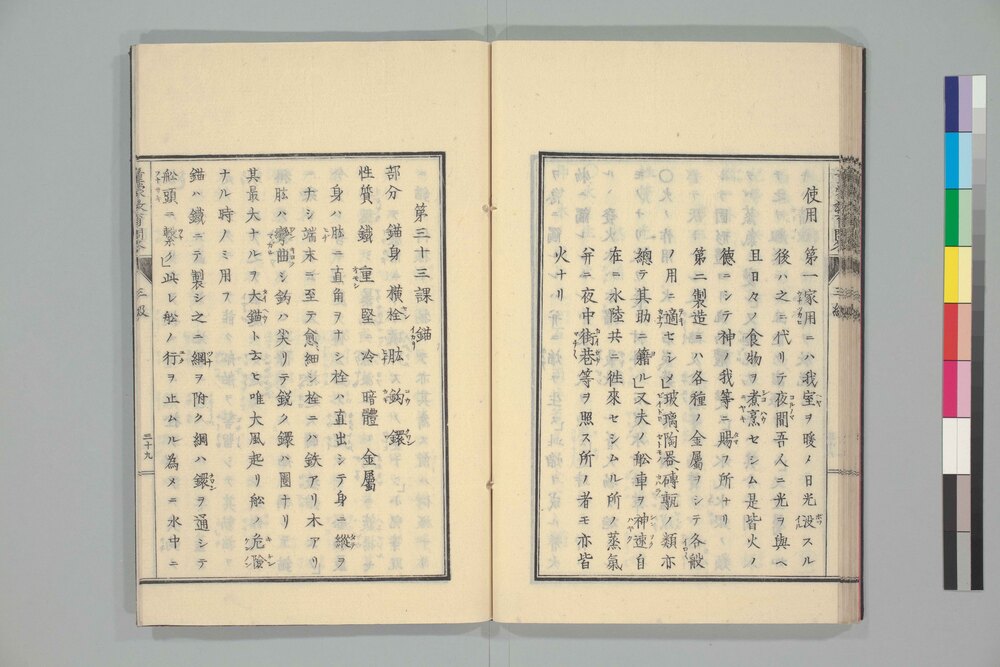 使用 第一家用ニハ我室ヲ暖メ日光沒スル
後ハ之ニ代リテ夜間吾人ニ光ヲ與ヘ
且日々ノ食物ヲ煮烹セシム是皆火ノ
德ニシテ神ノ我等ニ賜フ所ナリ
第二製造ニハ各種ノ金屬ヲシテ各般
ノ用ニ適セシメ玻璃、陶器、磚甎ノ類亦
總テ其助ニ籍ル又夫ノ舩車ヲ神速自
在ニ水陸共ニ徃來セシムル所ノ蒸氣
并ニ夜中街巷等ヲ照ス所ノ者モ亦皆
火ナリ
第三十三課 錨
部分 錨身 橫栓 肱 鈎 鐶
性質 鐵 重 堅 冷 暗體 金屬
身ハ肱ニ直角ヲナシ栓ハ直出シテ身ニ縱ヲ
ナシ端末ニ至テ愈細シ栓ニハ鉄アリ木アリ
肱ハ彎曲シ鈎ハ尖リテ銳ク鐶ハ圈ナリ
其最大ナルヲ大錨ト云ヒ唯大風起リ舩ノ危險
ナル時ノミ用フ
錨ハ鐵ニテ製シ之ニ綱ヲ附ク綱ハ鐶ヲ通シテ
舩頭ニ繫ク此レ舩ノ行ヲ止ムル為メニ水中ニ
三級
二十九